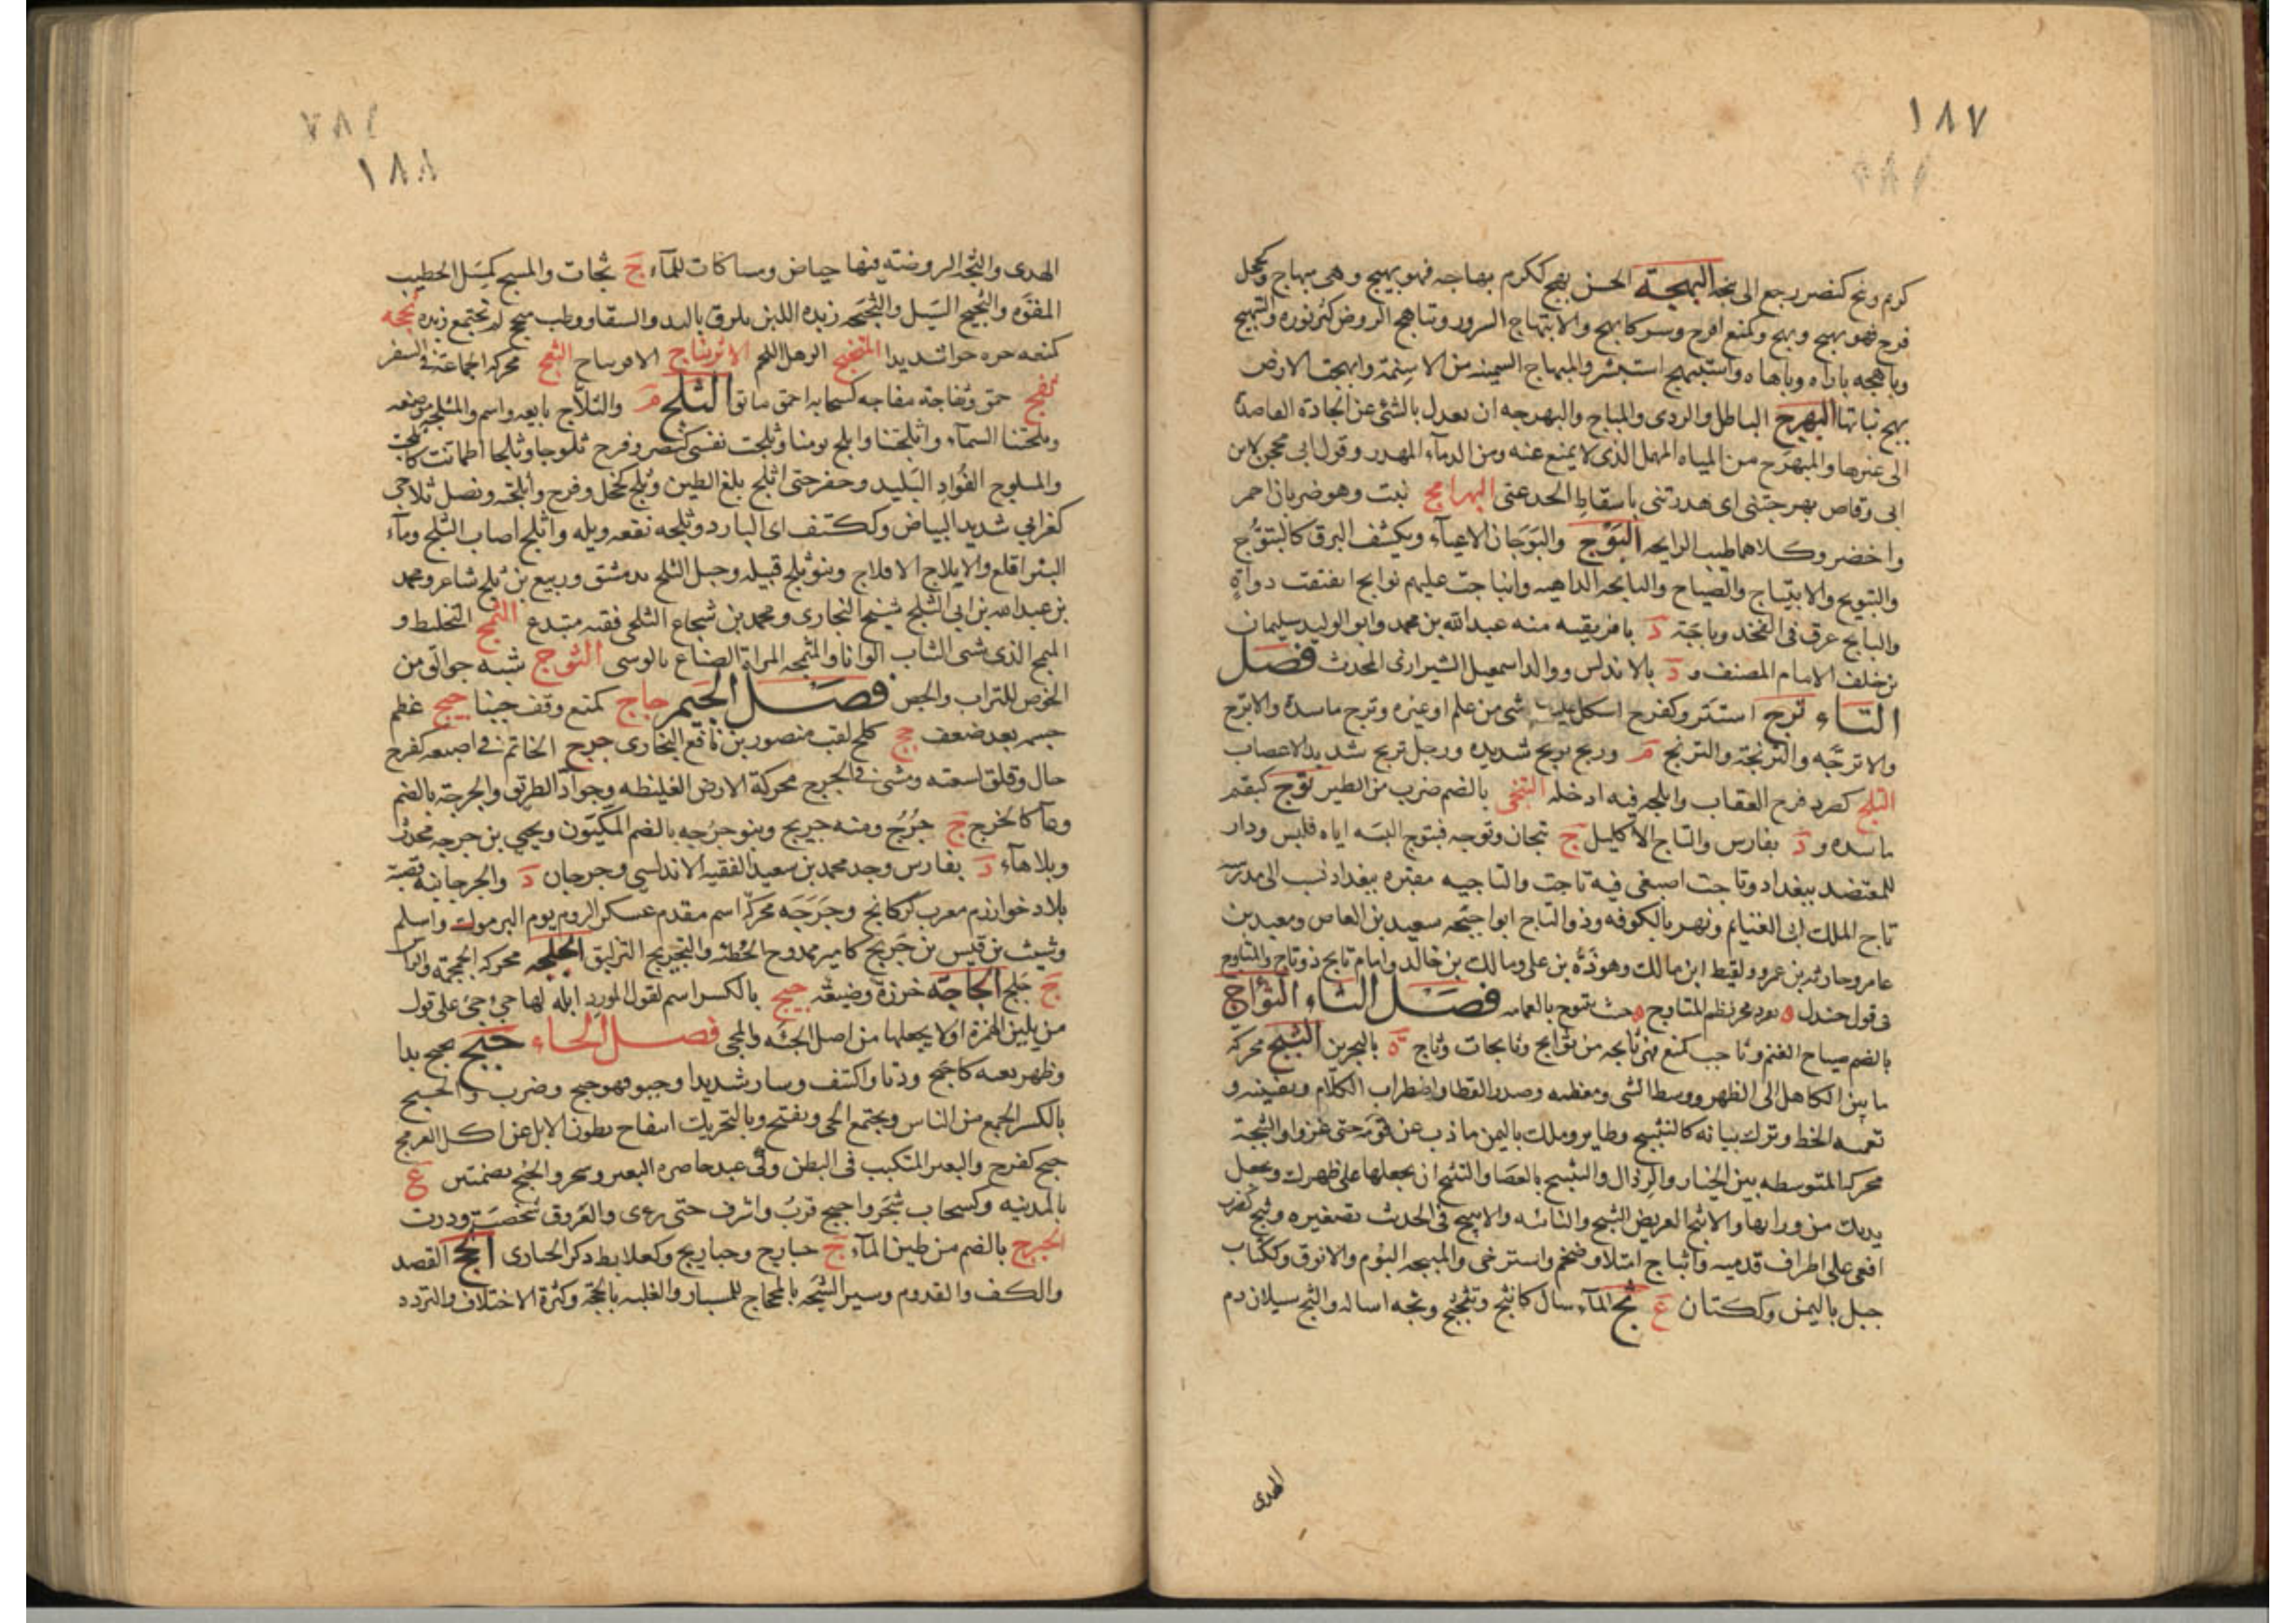 ١٨٧
كرم ونج كنصر رجع الى نجه البهجة الحسن بهج ككرم بهاجه فهو بهيج وهى مبهاج وكخجل
فرح فهو بهيج وبهج وكمنع افرح وسر كابهج والابتهاج السرور وتباهج الروض كثر نوره والتبهيج
وباهجه باراه وباهاه واستبهج استبشر والمبهاج السمينه من الاسنمة وابهجت الارض
بهج نباتها البهرج الباطل والردى والمباح والبهرجه ان يعدل بالشئ عن الجادة القاصدة
الى غيرها والمبهرج من المياه المهمل الذى لا يمنع عنه ومن الدماء المهدر وقول ابى محجن لابن
ابى وقاص بهرجتنى اى هدرتنى باسقاط الحد عنى البهرامج نبت وهو ضربان احمر
واخضر وكلاهما طيب الرايحه البوج والبوجان الاعياء وتكشف البرق كالتبوج
والتبويج والابتياج والصياح والبايجه الداهيه وانباجت عليهم بوايج انفتقت دواه
والبايج عرق فى الفخذ وباجة د بافريقيه منه عبدالله بن محمد وابو الوليد سليمان
بن خلف الامام المصنف و د بالاندلس ووالد اسمعيل الشيرازى المحدث فصل
التاء ترج استتر وكفرح اشكل عليه شى من علم او غيره وترج ماسدة والاترج
والاترجه والترنجة والترنج م وريح تريج شديده ورجل تريج شديد الاعصاب
التلج كصرد فرخ العقاب واتلجه فيه ادخله التنجى بالضم ضرب من الطير توج كبقم
ماسده و د بفارس والتاج الاكليل ج تيجان وتوجه فتتوج البسه اياه فلبس ودار
للمعتضد ببغداد وتاجت اصبعى فيه تاجت والتاجيه مقبره ببغداد نسب الى مدرسه
تاج الملك ابى الغنايم ونهر بالكوفه وذو التاج ابو احيحه سعيد بن العاص ومعبد بن
عامر وحارثه بن عمرو ولقيط ابن مالك وهوذة بن على ومالك بن خالد وامام تايج ذو تاج والمتاوج
فى قول جندل ه حث بتوج بالعمامه فصل الثاء الثؤاج
بالضم صياح الغنم وثاجت كمنع فهى ثايجه من ثوايج وثايجات وثاج ة بالبحرين الثبج محركه
ما بين الكاهل الى الظهر ووسط الشى ومعظمه وصدر القطا واضطراب الكلام وتفنينه و
تعميه الخط وترك بيانه كالتثبيج وطاير وملك باليمن ما ذب عن قومه حتى غزوا والثبجة
محركه المتوسطه بين الخيار والرذال والتثبيج بالعصا والتثبج ان يجعلها على ظهرك ويجعل
يديك من ورايها والاثبج العريض الثبج والناتئه والاثيبج فى الحديث تصغيره وثبج كضرب
اقعى على اطراف قدميه واثباج امتلا وضخم واسترخى والمثبجه البوم والانوق وككتاب
جبل باليمن وككتان ع ثج الماء سال كانثج وتثجثج وثجه اساله والثج سيلان دم
الهدى
١٨٨
الهدى والثجه الروضته فيها حياض ومساكات للماء ج ثجات والمسج كمسل الخطيب
المفوه والثجيج السيل والثجيجه زبده اللبن يلزق باليد والسقاء ووطب مثج لم تجتمع زبده ثحجه
كمنعه جره جرا شديدا المثخبج الرهل اللحم الاثرنتاج الافرساخ الثعج محركة الجماعة فى السفر
ثفج حمق وثفاجة مفاجه كسحابه احمق مائق الثلج م والثلاج بايعه واسم والمثلجه موضعه
وثلجتنا السماء واثلجتنا واثلج يومنا وثلجت نفسى كنصر وفرح ثلوجا وثلجا اطمانت كاثلجت
والمثلوج الفؤاد البليد وحفر حتى اثلج بلغ الطين وثلج كخجل وفرح واثلجته ونصل ثلاجى
كغرابى شديد البياض وككتف اى البارد وثلجه نقعه وبله واثلج اصاب الثلج وماء
البئر اقلع والاثلاج الافلاج وبنو ثلج قبيله وجبل الثلج بدمشق وربيع بن ثلج شاعر ومحمد
بن عبدالله بن ابى الثلج شيخ البخارى ومحمد بن شجاع الثلجى فقيه مبتدع الثمج التخليط و
المثمج الذى شى الثياب الوانا والمثمجه المراة الصناع بالوشى الثوج شبه جوالق من
الخوص للتراب والجص فصل الجيم جاج كمنع وقف جبنا جبج عظم
جسمه بعد ضعف جج كلمج لقب منصور بن نافع البخارى جرج الخاتم فى اصبعه كفرح
جال وقلق لسعته ومشى فى الجرج محركة الارض الغليظه وجواد الطريق والجرجة بالضم
وعاء كالخرج ج جرج ومنه جريج وبنو جرجه بالضم المكيون ويحيى بن جرجه محدث
وبلا هاء د بفارس وجد محمد بن سعيد الفقيه الاندلسى وجرجان د والجرجانية قصبة
بلاد خوارزم معرب كركانج وجرجه محركة اسم مقدم عسكر الروم يوم اليرموك واسلم
وشبث بن قيس بن جريج كامير ممدوح الحطئه والتجريج التزليق الجلجه محركه الجمجمة والراس
ج جلج الجاجة خرزة وضيعة جيج بالكسر اسم لقول المورد ابله لها جئ جئ على قول
من يلين الهمزة او لا يجعلها من اصل الجئه والمجى فصل الحاء حبج يحبج بدا
وظهر بغتة كاحبج ودنا واكتنف وسار شديدا وحبو فهو حبج وضرب والحبج
بالكسر الجمع من الناس ومجتمع الحى ويفتح وبالتحريك انتفاخ بطون الابل عن اكل العرفج
حبج كفرح والبعر المتكبب فى البطن وكى عند خاصره البعير وشجر والحبج بضمتين ع
بالمدينه وكسحاب شجر واحبج قرب واشرف حتى رءى والعروق شخصت ودرت
الحبرج بالضم من طين الماء ج حبارج وحباريج وكعلابط ذكر الحبارى الحج القصد
والكف والقدوم وسبر الشجه بالمحجاج للمسبار والغلبه بالحجة وكثرة الاختلاف والتردد